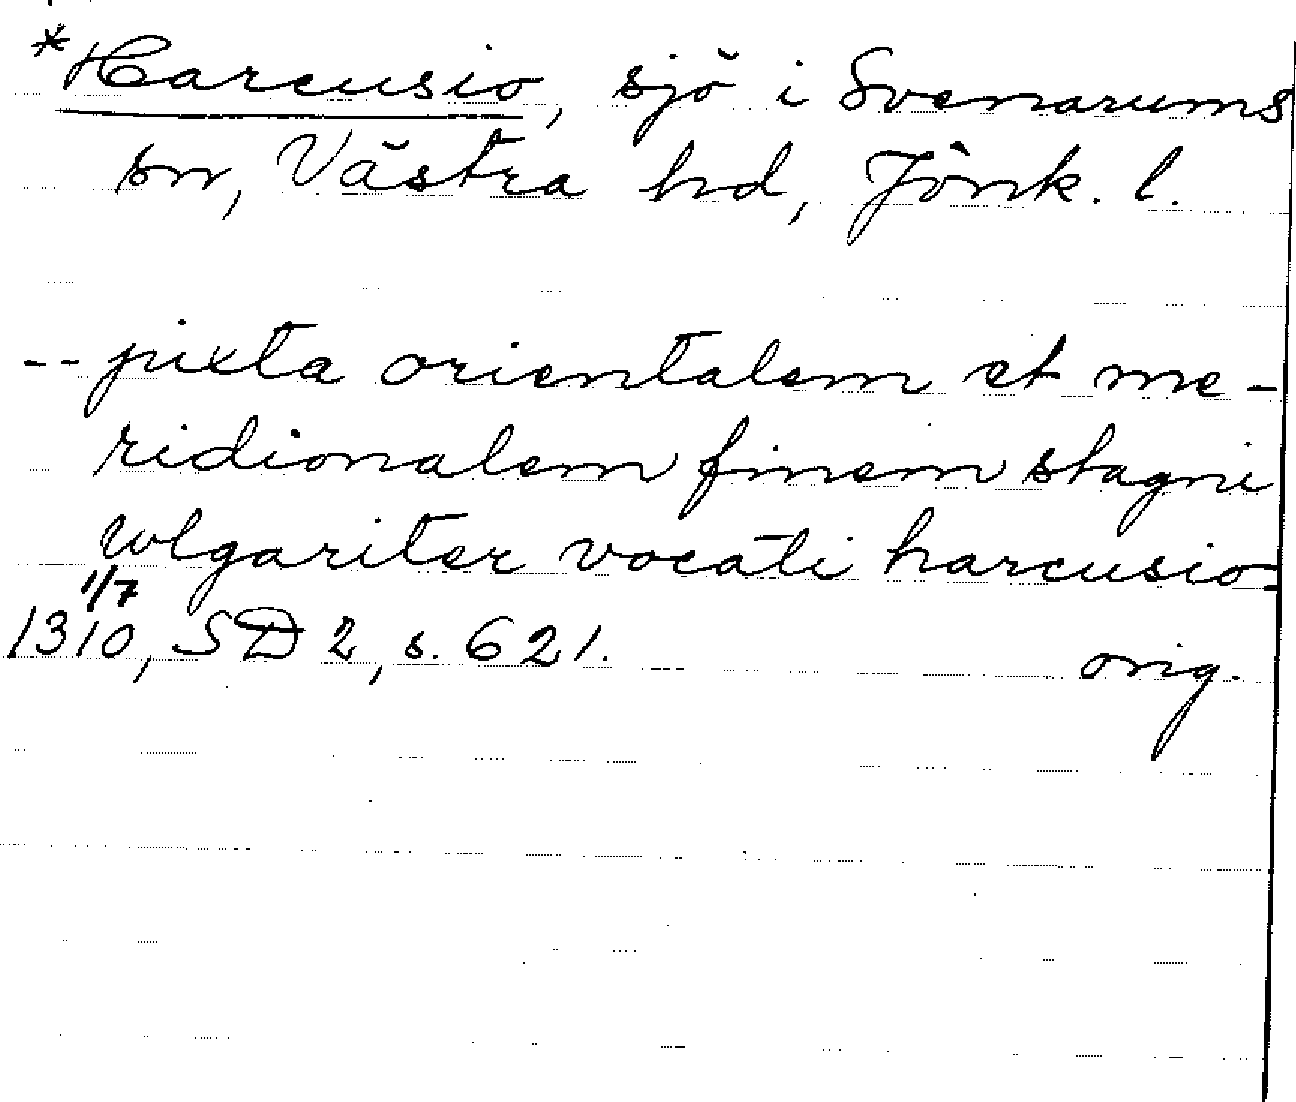 *Harcusio, sjö i Svenarums
sn, Västra hd, Jönk. l.
-- juxta orientalem et me-
ridionalem finem stagni
wlgariter vocati harcusio
1/7
1310, SD 2, s. 621. orig.